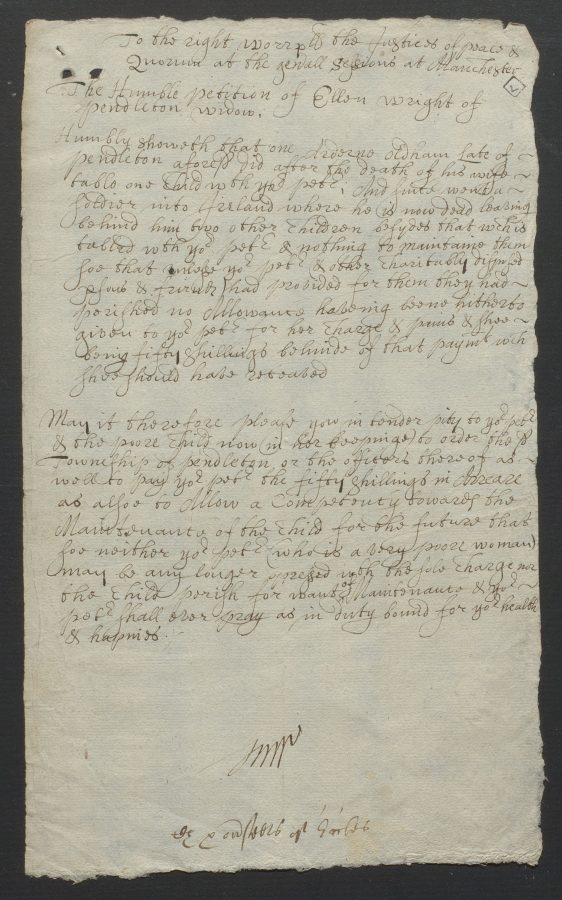 To the right worrpll the Justices of peace &
Quorum at the genall Sessions at Manchester
The Humble petition of Ellen Wright of
Pendleton widow.
Humbly Showeth that one Arderne Oldham Late of
Pendleton aforesd did after the death of his wife
table one Child wth yor petr. And since went a
Soldier into Ireland where he is now dead leaving
behind him two other Children besydes that wch is
tabled wth yor petr & nothing to maintaine them
soe that unless yor petr & other Charitably disposed
psons & friends had provided for them they had
perished no Allowance haveing beene hitherto
given to yor petr for her Charge & pains & shee
being fifty shillings behinde of that paymt wch
shee should have receaved
May it therefore please yow in tender pity to yor petr
& the poore Child now (in her keepinge) to order the sd
Township of Pendleton or the officers thereof as
well to pay yor petr the fifty shillings in Arreare
as alsoe to Allow a Competency towards the
Maintenance of the Child for the future that
soe neither yor petr (who is a very poore woman)
may be any longer oppressed wth the sole Charge nor
the Child perish for want of Maintenance & yor
petr shall ever pray as in duty bound for yor health
& hapines.